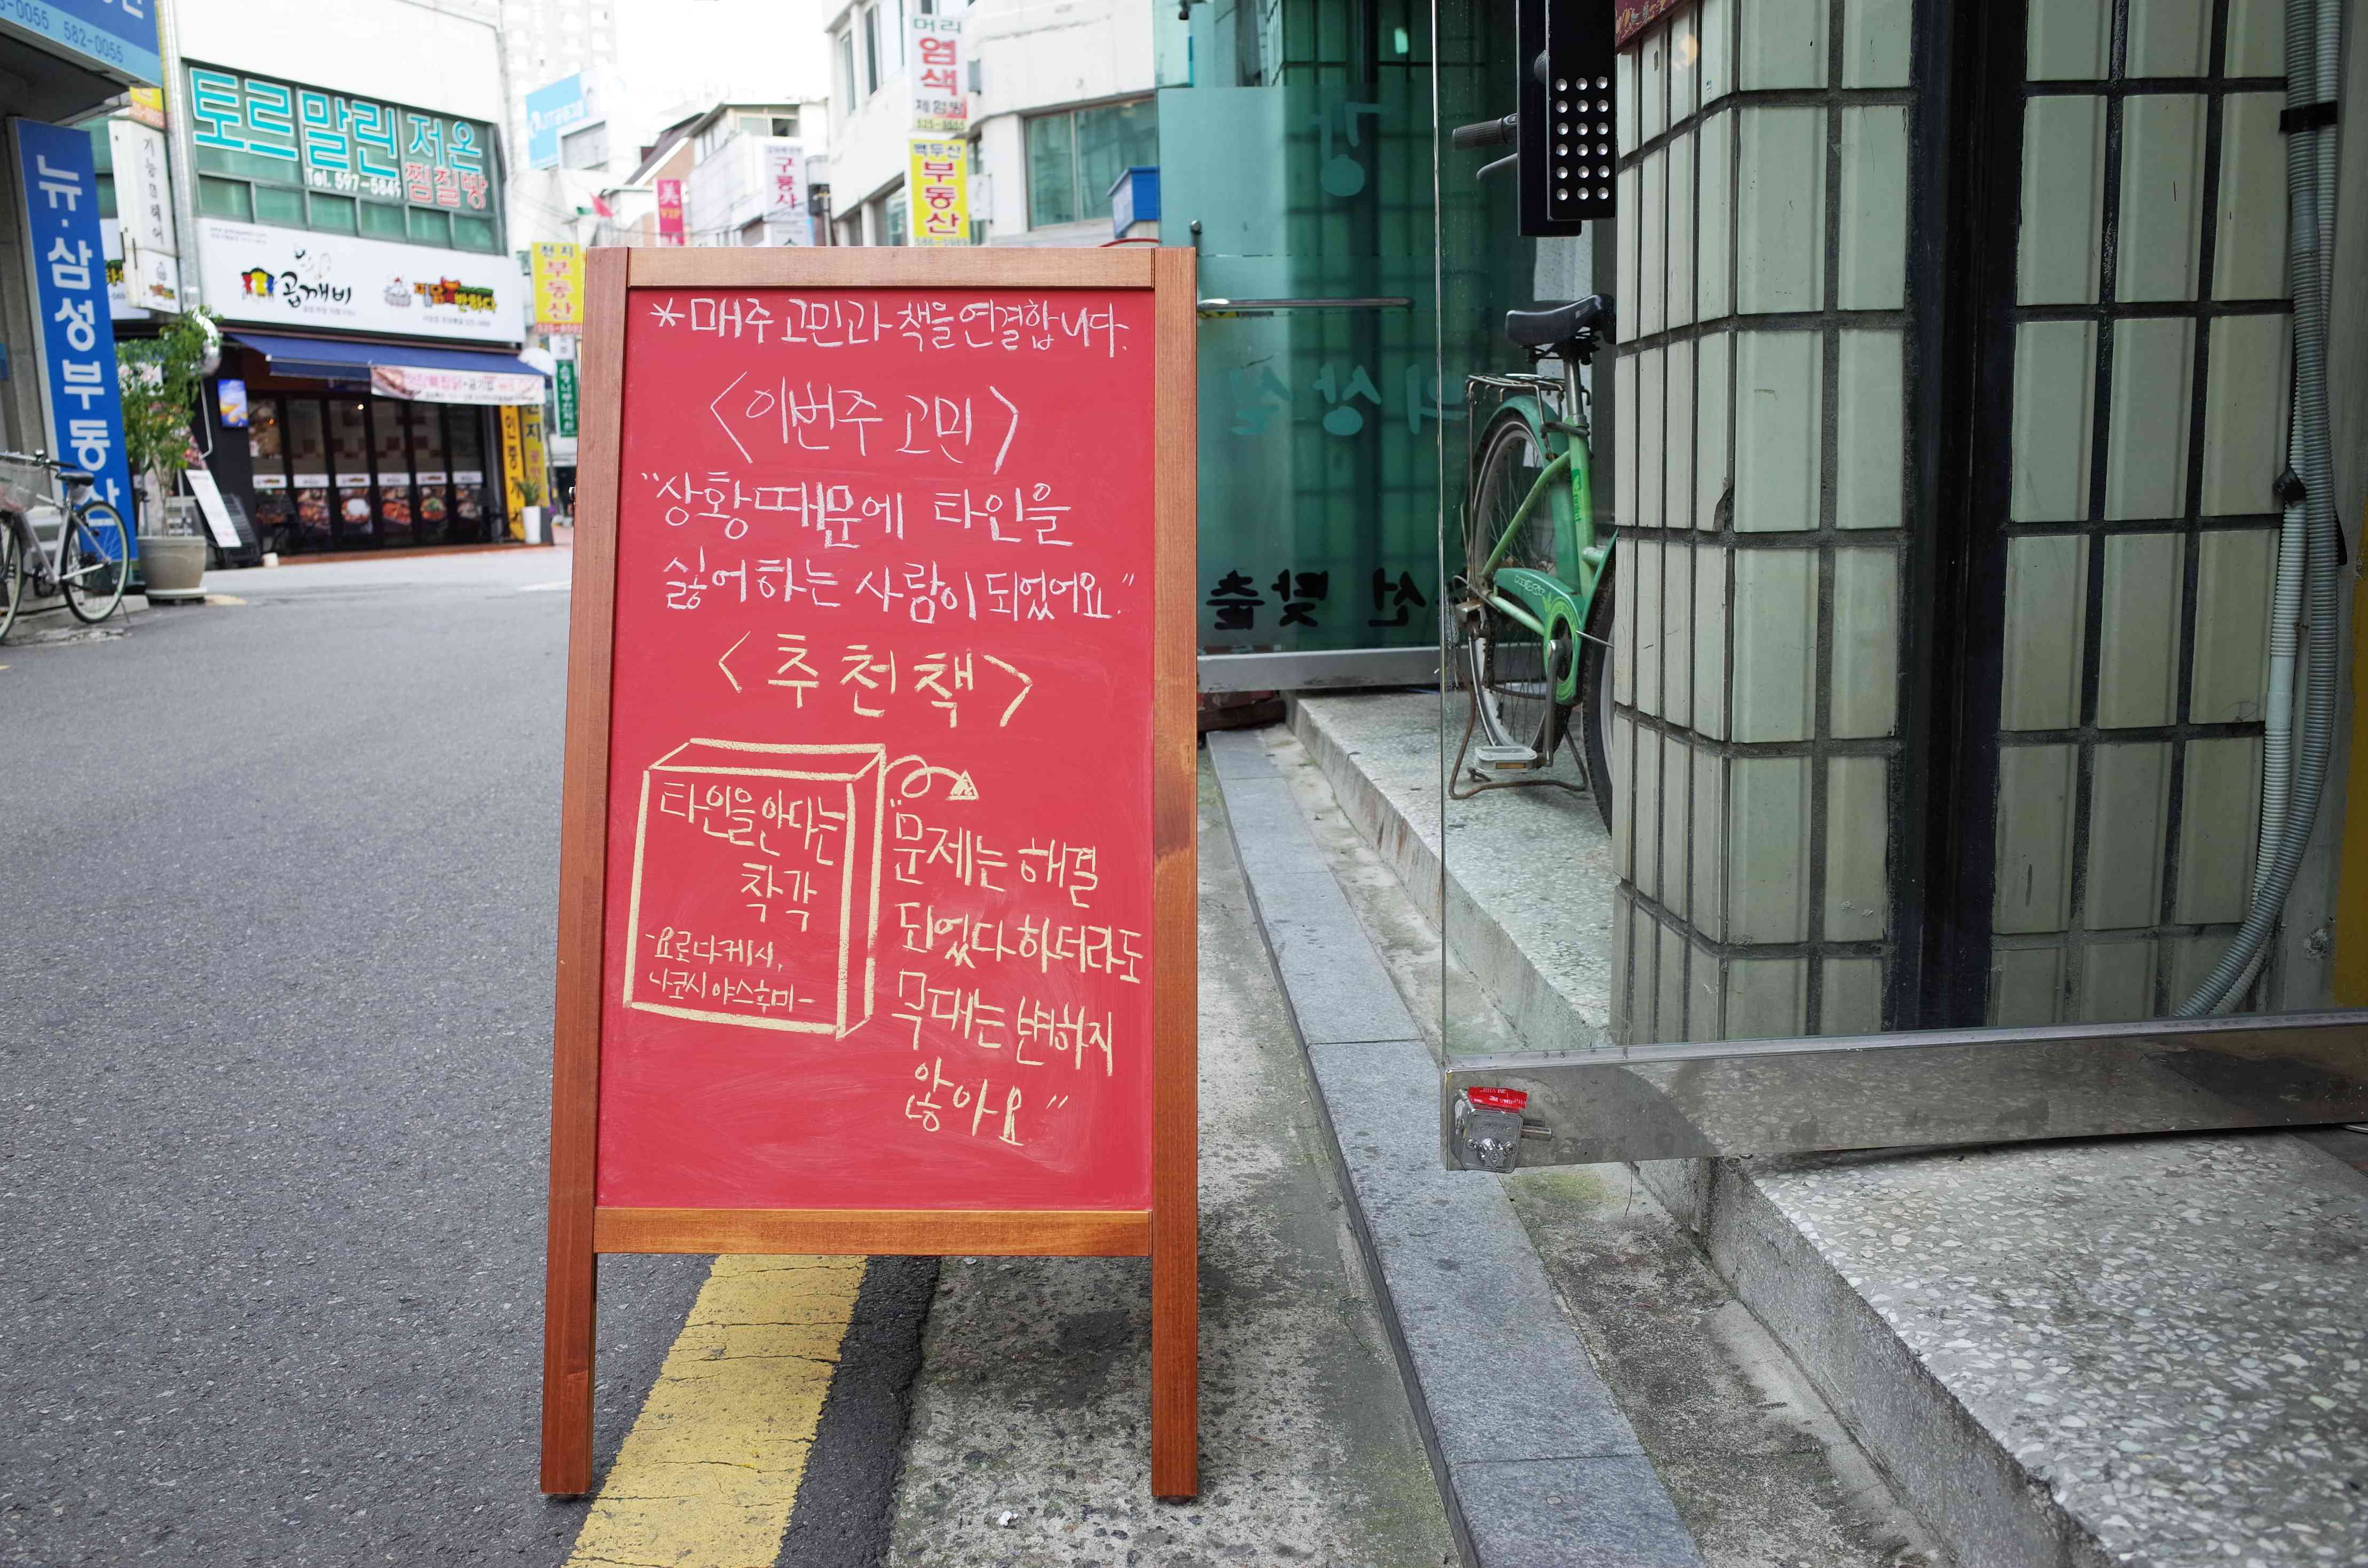 *매주 고민과 책을 연결합니다.
<이번주 고민>
"상황때문에 타인을
싫어하는 사람이 되었어요."
<추천책>
타인을 안다는
착각
-요로다케시,
나코시 야스후미-
"문제는 해결
되었다 하더라도
무대는 변하지
않아요"
582-0055
뉴·삼성부동산
토르말린 저온
찜질방
Tel. 597-5849
곱깨비
머리
염색
체험방
525-9555
백두산
부동산
586-5989
구룡사
美
VIP
현지
부동산
강
의상실